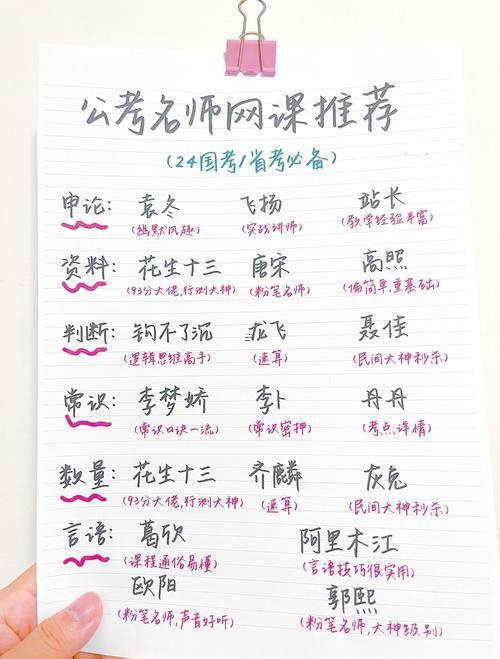 公考名师网课推荐
(24国考/省考必备)
申论: 袁冬 飞扬 站长
(幽默风趣) (实战讲师) (教学经验丰富)
资料: 花生十三 唐宋 高照
(93分大佬,行测大神) (粉笔名师) (偏简单,重基础)
判断: 钩不了沉 龙飞 聂佳
(逻辑思维高手) (速算) (民间大神秒杀)
常识: 李梦娇 李卜 丹丹
(常识口诀一流) (常识密押) (考点详情)
数量: 花生十三 齐麟 灰兔
(93分大佬,行测大神) (速算) (民间大神秒杀)
言语: 葛欣 阿里木江
(课程通俗易懂) (言语技巧很实用)
欧阳 郭熙
(粉笔名师,声音好听) (粉笔名师,大神级别)